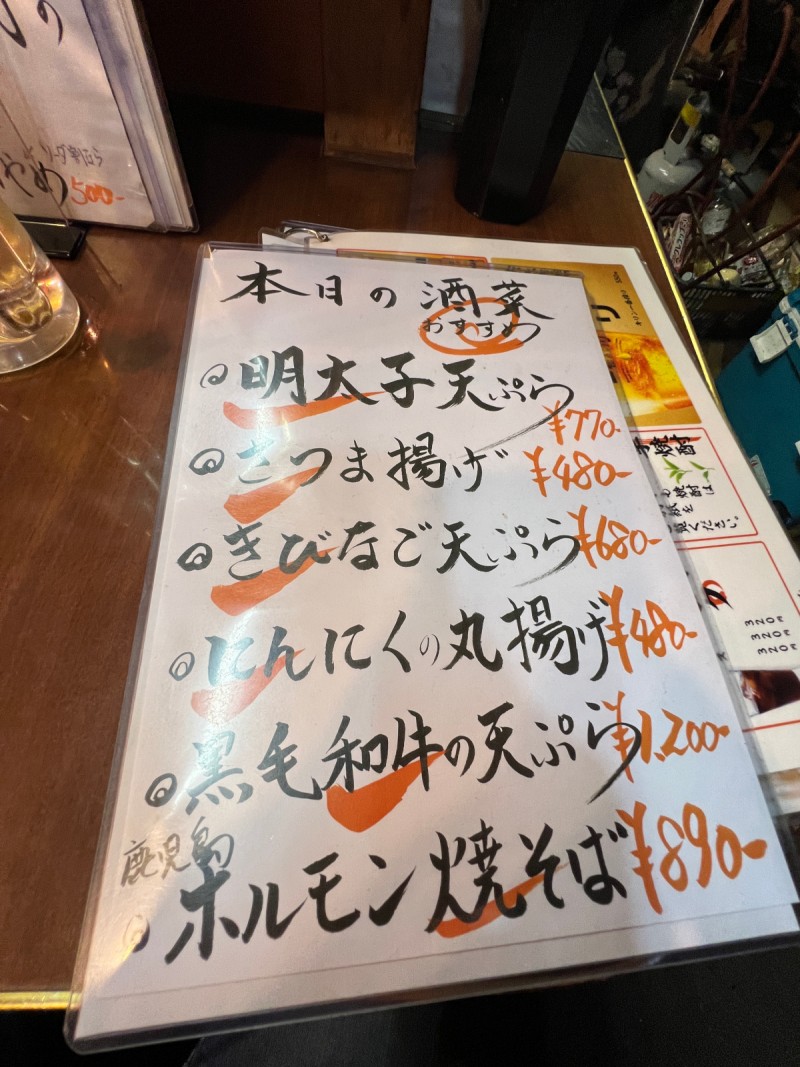 500-
本日の酒菜
おすすめ
明太子天ぷら ¥770-
さつま揚げ ¥480-
きびなご天ぷら ¥680-
にんにくの丸揚げ ¥480-
黒毛和牛の天ぷら ¥1,200-
鹿児島
ホルモン焼そば ¥890-
焼酎
焼酎は
ください。